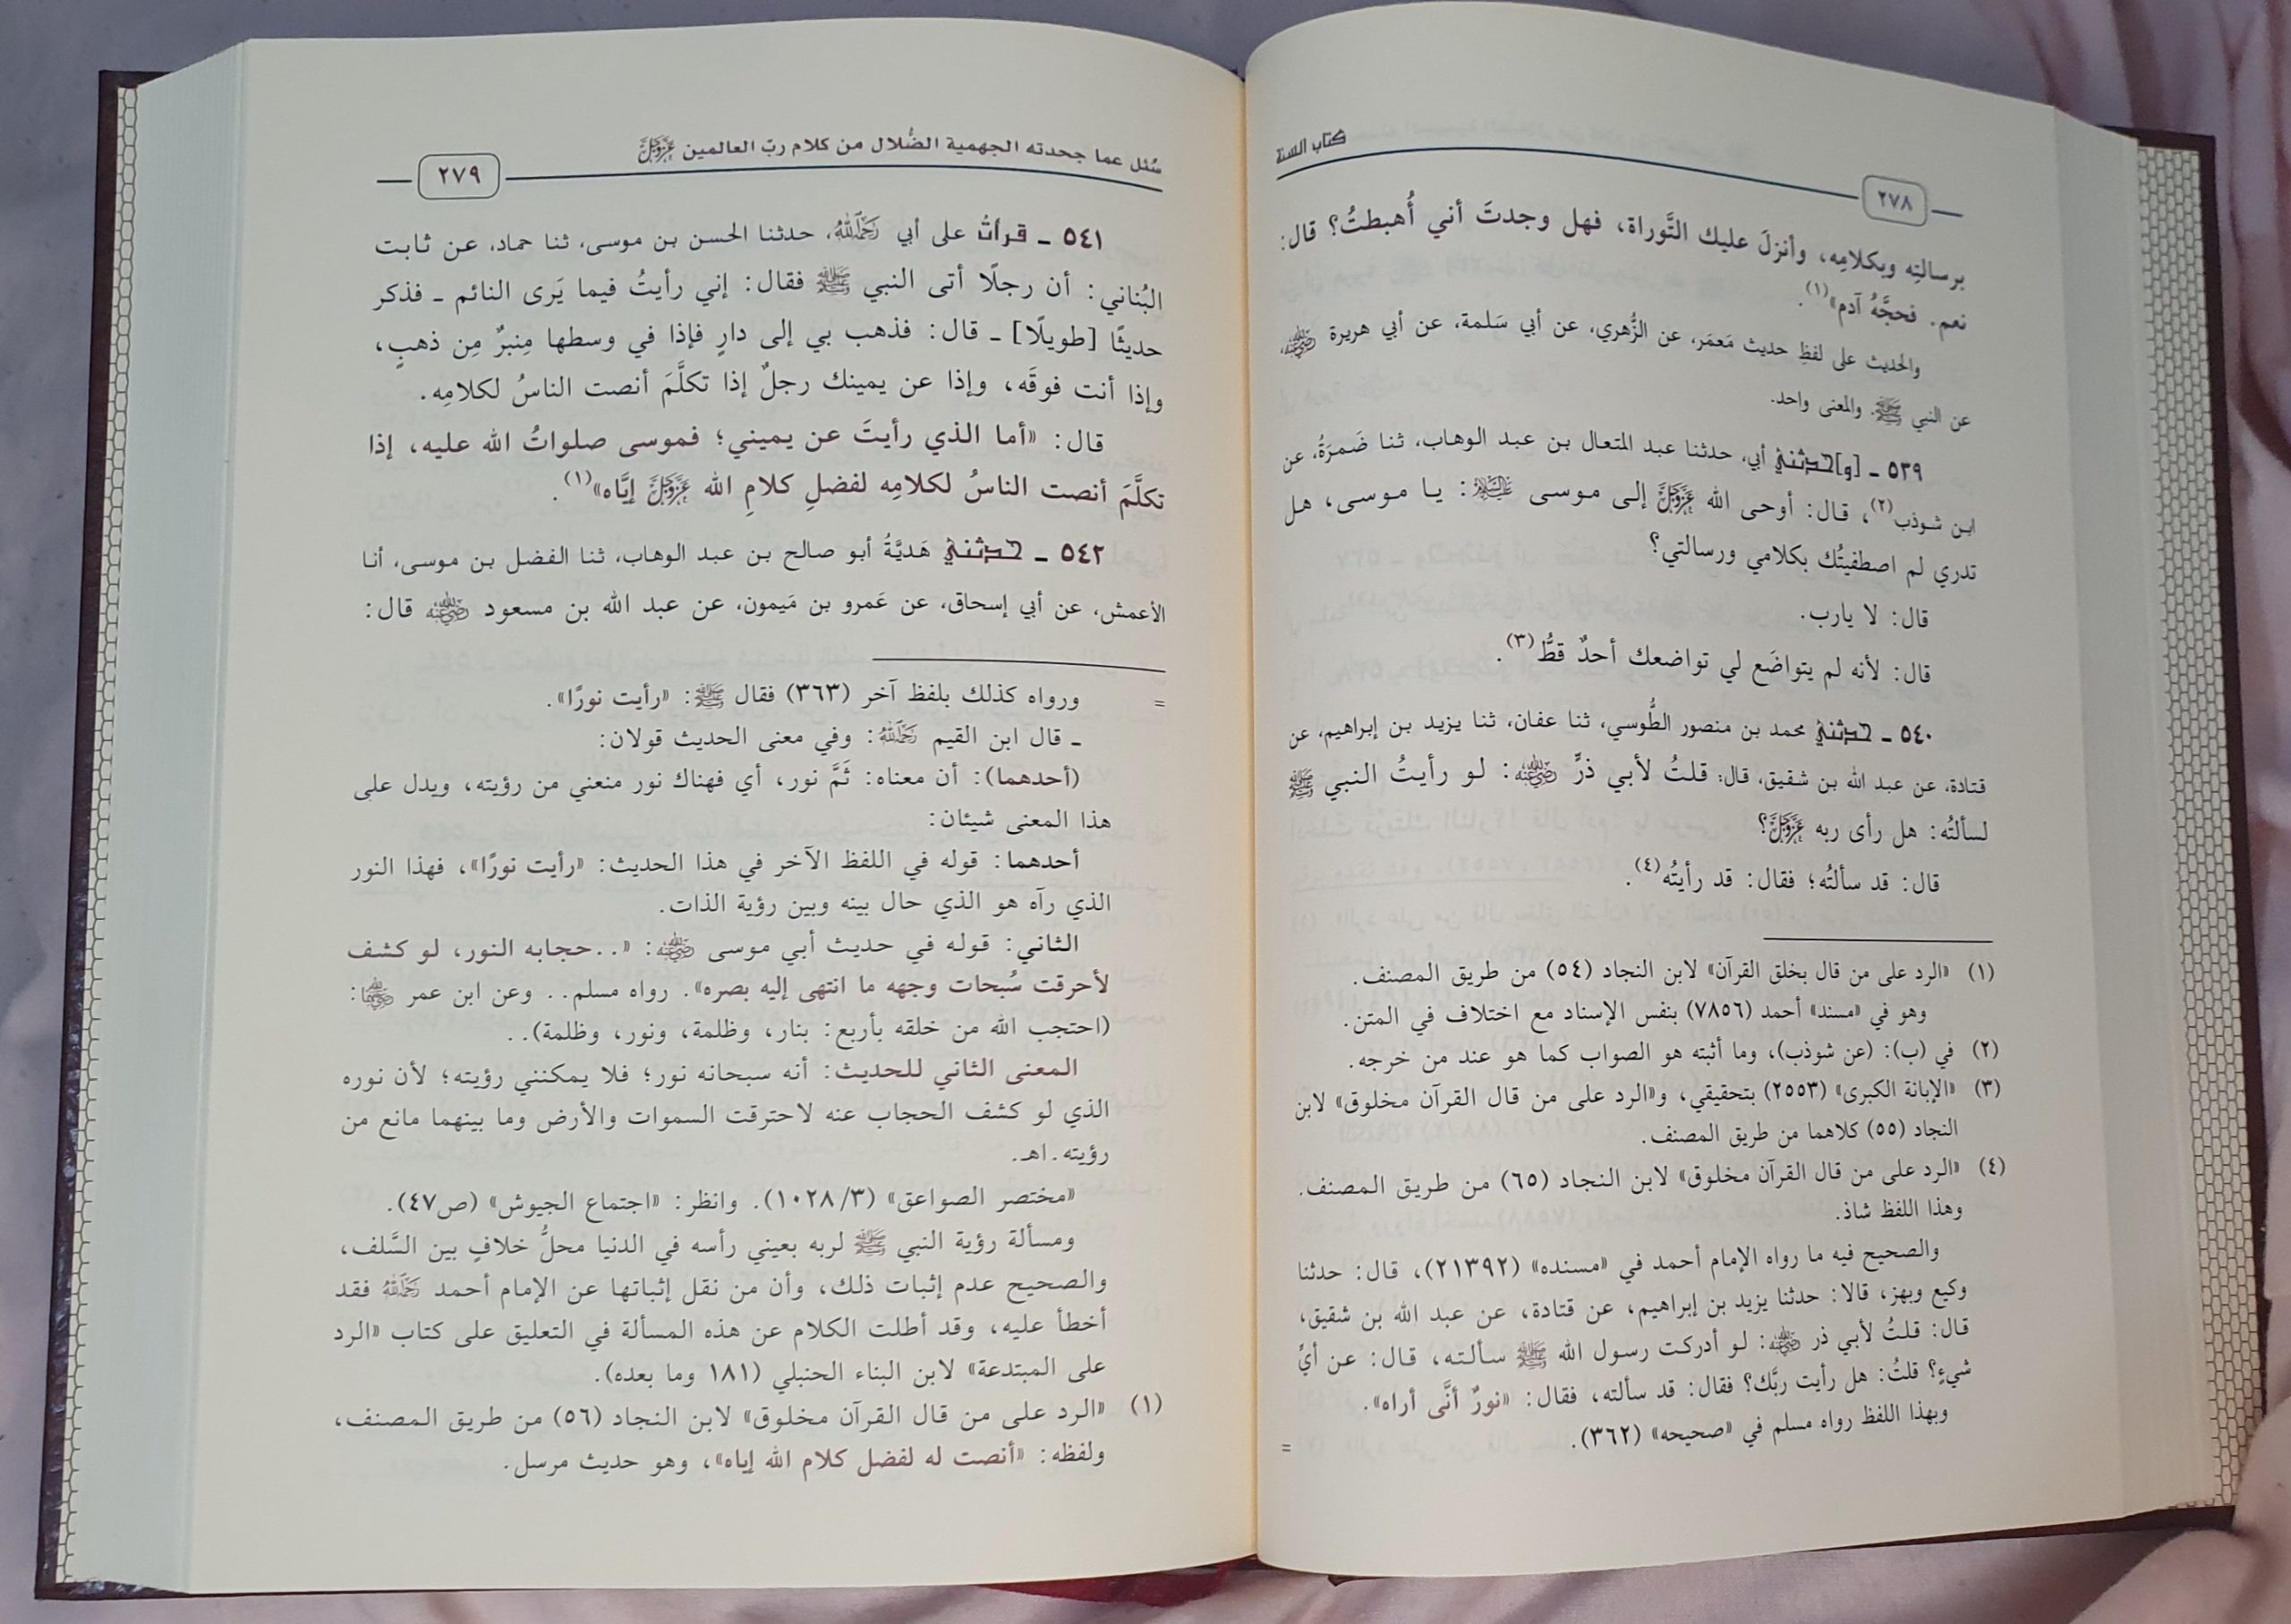 كتاب السنة
٢٧٨
برسالتِه وبكلامِه، وأنزلَ عليك التَّوراة، فهل وجدتَ أني أُهبطتُ؟ قال:
نعم. فحجَّهُ آدم»(١).
والحديث على لفظِ حديث مَعمَر، عن الزُّهري، عن أبي سَلمة، عن أبي هريرة ﷺ،
عن النبي ﷺ. والمعنى واحد.
٥٣٩ ـ [و]حدثني أبي، حدثنا عبد المتعال بن عبد الوهاب، ثنا ضَمرَةُ، عن
ابن شوذب(٢)، قال: أوحى الله عَزَّوَجَلَّ إلى موسى عَلَيْهِ السَّلَامُ: يا موسى، هل
تدري لم اصطفيتُك بكلامي ورسالتي؟
قال: لا يارب.
قال: لأنه لم يتواضَع لي تواضعك أحدٌ قطُّ(٣).
٥٤٠ ـ حدثني محمد بن منصور الطُّوسي، ثنا عفان، ثنا يزيد بن إبراهيم، عن
قتادة، عن عبد الله بن شقيق، قال: قلتُ لأبي ذرٍّ رَضِيَ اللَّهُ عَنْهُ: لو رأيتُ النبي ﷺ
لسألتُه: هل رأى ربه عَزَّوَجَلَّ؟
قال: قد سألتُه؛ فقال: قد رأيتُه(٤).
(١) «الرد على من قال بخلق القرآن» لابن النجاد (٥٤) من طريق المصنف.
وهو في «مسند» أحمد (٧٨٥٦) بنفس الإسناد مع اختلاف في المتن.
(٢) في (ب): (عن شوذب)، وما أثبته هو الصواب كما هو عند من خرجه.
(٣) «الإبانة الكبرى» (٢٥٥٣) بتحقيقي، و«الرد على من قال القرآن مخلوق» لابن
النجاد (٥٥) كلاهما من طريق المصنف.
(٤) «الرد على من قال القرآن مخلوق» لابن النجاد (٦٥) من طريق المصنف.
وهذا اللفظ شاذ.
والصحيح فيه ما رواه الإمام أحمد في «مسنده» (٢١٣٩٢)، قال: حدثنا
وكيع وبهز، قالا: حدثنا يزيد بن إبراهيم، عن قتادة، عن عبد الله بن شقيق،
قال: قلتُ لأبي ذر رَضِيَ اللَّهُ عَنْهُ: لو أدركت رسول الله ﷺ سألته، قال: عن أيِّ
شيءٍ؟ قلتُ: هل رأيت ربَّك؟ فقال: قد سألته، فقال: «نورٌ أنَّى أراه».
وبهذا اللفظ رواه مسلم في «صحيحه» (٣٦٢). =
سُئل عما جحدته الجهمية الضُّلال من كلام ربّ العالمين عَزَّوَجَلَّ
٢٧٩
٥٤١ ـ قرأت على أبي رَحِمَهُ اللَّهُ، حدثنا الحسن بن موسى، ثنا حماد، عن ثابت
البُناني: أن رجلًا أتى النبي ﷺ فقال: إني رأيتُ فيما يَرى النائم ـ فذكر
حديثًا [طويلًا] ـ قال: فذهب بي إلى دارٍ فإذا في وسطها مِنبرٌ مِن ذهبٍ،
وإذا أنت فوقَه، وإذا عن يمينك رجلٌ إذا تكلَّمَ أنصت الناسُ لكلامِه.
قال: «أما الذي رأيتَ عن يميني؛ فموسى صلواتُ الله عليه، إذا
تكلَّمَ أنصت الناسُ لكلامِه لفضلِ كلامِ الله عَزَّوَجَلَّ إيَّاه»(١).
٥٤٢ ـ حدثني هَديَّةُ أبو صالح بن عبد الوهاب، ثنا الفضل بن موسى، أنا
الأعمش، عن أبي إسحاق، عن عَمرو بن مَيمون، عن عبد الله بن مسعود رَضِيَ اللَّهُ عَنْهُ قال:
= ورواه كذلك بلفظ آخر (٣٦٣) فقال ﷺ: «رأيت نورًا».
ـ قال ابن القيم رَحِمَهُ اللَّهُ: وفي معنى الحديث قولان:
(أحدهما): أن معناه: ثَمَّ نور، أي فهناك نور منعني من رؤيته، ويدل على
هذا المعنى شيئان:
أحدهما: قوله في اللفظ الآخر في هذا الحديث: «رأيت نورًا»، فهذا النور
الذي رآه هو الذي حال بينه وبين رؤية الذات.
الثاني: قوله في حديث أبي موسى رَضِيَ اللَّهُ عَنْهُ: «..حجابه النور، لو كشف
لأحرقت سُبحات وجهه ما انتهى إليه بصره». رواه مسلم.. وعن ابن عمر رَضِيَ اللَّهُ عَنْهُمَا:
(احتجب الله من خلقه بأربع: بنار، وظلمة، ونور، وظلمة)..
المعنى الثاني للحديث: أنه سبحانه نور؛ فلا يمكنني رؤيته؛ لأن نوره
الذي لو كشف الحجاب عنه لاحترقت السموات والأرض وما بينهما مانع من
رؤيته.اهـ.
«مختصر الصواعق» (١٠٢٨/٣). وانظر: «اجتماع الجيوش» (ص٤٧).
ومسألة رؤية النبي ﷺ لربه بعيني رأسه في الدنيا محلُّ خلافٍ بين السَّلف،
والصحيح عدم إثبات ذلك، وأن من نقل إثباتها عن الإمام أحمد رَحِمَهُ اللَّهُ فقد
أخطأ عليه، وقد أطلت الكلام عن هذه المسألة في التعليق على كتاب «الرد
على المبتدعة» لابن البناء الحنبلي (١٨١ وما بعده).
(١) «الرد على من قال القرآن مخلوق» لابن النجاد (٥٦) من طريق المصنف،
ولفظه: «أنصت له لفضل كلام الله إياه»، وهو حديث مرسل.